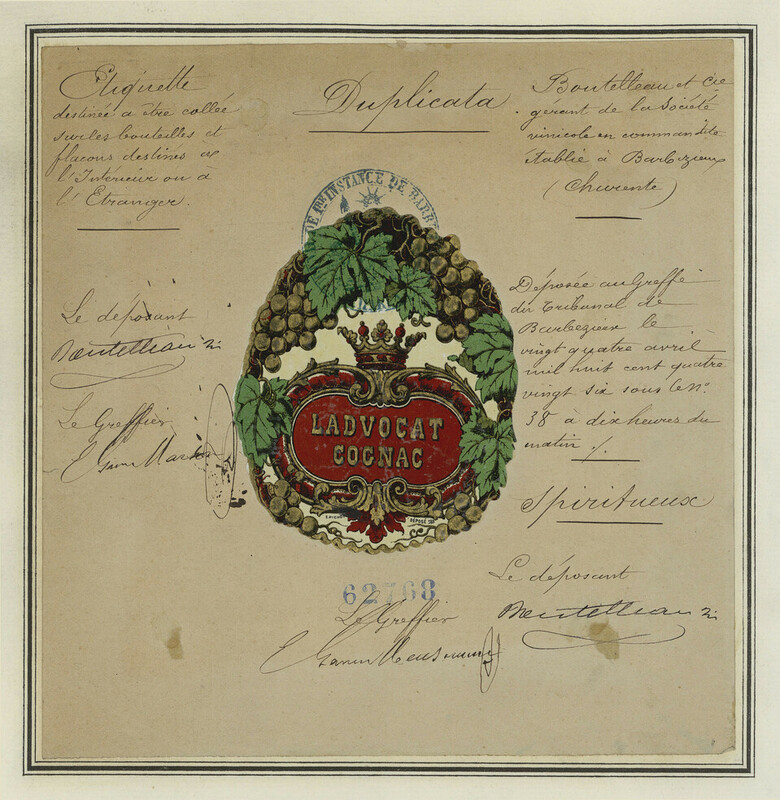 Etiquette
destinée a être collée
sur les bouteilles et
flacons destinés a
l'Intérieur ou a
l'Etranger.
Duplicata
Boutelleau et Cie
gérant de la Société
vinicole en commandite
établie à Barbezieux
(Charente)
DE 1RE INSTANCE DE BARB
LADVOCAT
COGNAC
DÉPOSÉ
Le déposant
Boutelleau
Le Greffier
Déposée au Greffe
du Tribunal de
Barbezieux le
vingt quatre avril
mil huit cent quatre
vingt six sous le No
38 à dix heures du
matin ./.
Spiritueux
Le déposant
Boutelleau
62768
Le Greffier